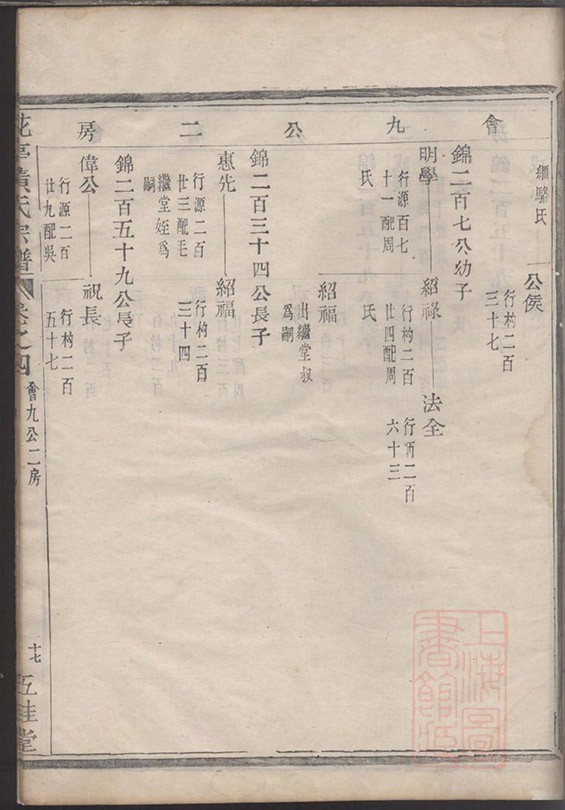 會九公二房
繼駱氏
公侯
行杓二百
三十七
錦二百七公幼子
明學
行源百七
十一配周
氏
紹祿
行杓二百
廿四配周
氏
法全
行丙二百
六十三
紹福
出繼堂叔
爲嗣
錦二百三十四公長子
惠先
行源二百
廿三配毛
繼堂姪爲
嗣
紹福
行杓二百
三十四
錦二百五十九公長子
偉公
行源二百
廿九配吳
氏
祝長
行杓二百
五十七
花亭黃氏宗譜
卷之四
會九公二房
十七
五桂堂
上海圖書館藏